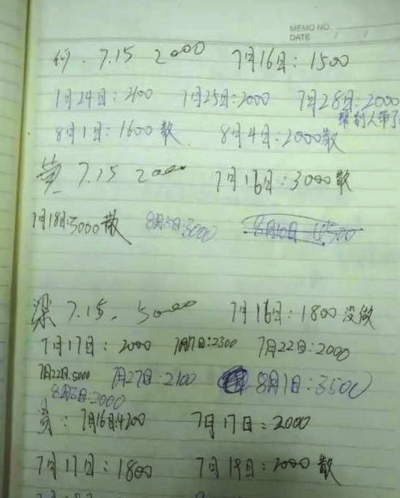 MEMO NO.
DATE / /
何 7.15 2000 7月16日:1500
1月24日:2100 7月25日:2000 7月28日:2000
8月1日:1600散 8月4日:2000散
黄 7.15 2000 7月16日:3000散
7月18日:5000散 8月3日:3000
梁 7.15. 5000 7月16日:1800没做
7月17日:2000 7月17日:2300 7月22日:2000
7月22日:5000 7月27日:2100 8月1日:3500
8月3日:2000
7月16日:4200 7月17日:2000
7月17日:1800 7月19日:2000散